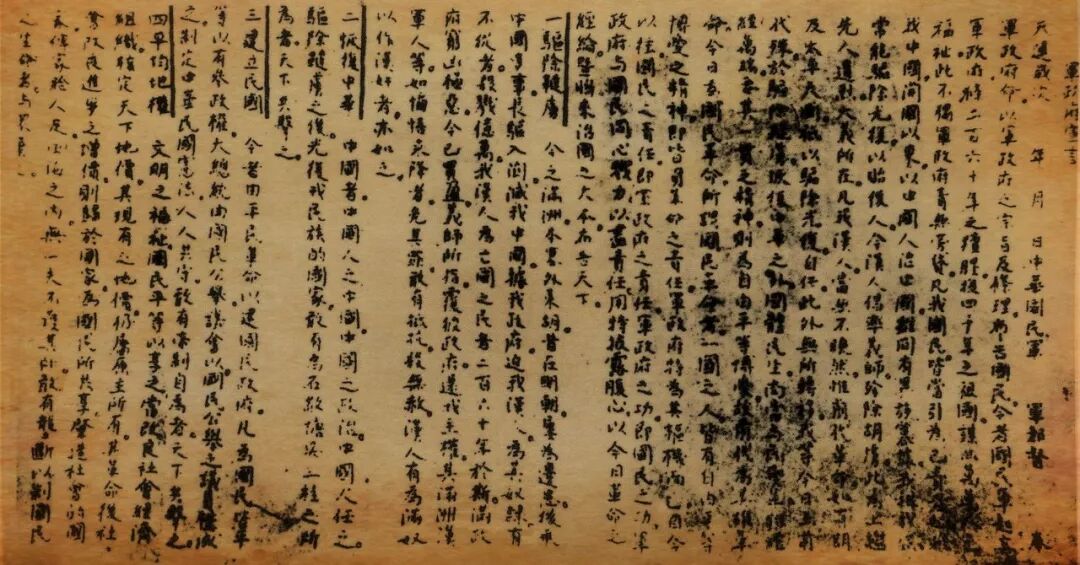 軍政府宣言
天運歲次 年 月 日中華國民軍 軍都督 奉
軍政府命以軍政府之宗旨及條理布告國民今者國民軍起立
軍政府滌二百六十年之羶腥復四千年之祖國謀四萬萬人
福祉此不獨軍政府責無旁貸凡我國民皆當引為己責
我中國開國以來以中國人治中國雖間有異族篡據我祖我
常能驅除光復以貽後人今漢人倡率義師殄除胡虜此為上繼
先人遺烈大義所在凡我漢人當無不曉然惟前代革命如有明
及太平天國祇以驅除光復自任此外無所轉移我等今日與前
代殊於驅除韃虜恢復中華之外國體民生尚當與民變革雖經
緯萬端要其一貫之精神則為自由平等博愛故前代為英雄革
命今日為國民革命所謂國民革命者一國之人皆有自由平等
博愛之精神即皆負革命之責任軍政府特為其樞機而已自今
以往國民之責任即軍政府之責任軍政府之功即國民之功軍
政府與國民同心戮力以盡責任用特披露腹心以今日革命之
經綸暨將來治國之大本布告天下
一驅除韃虜 今之滿洲本塞外東胡昔在明朝屢為邊患後乘
中國多事長驅入關滅我中國據我政府迫我漢人為其奴隸有
不從者殺戮億萬我漢人為亡國之民者二百六十年於斯滿政
府窮凶極惡今已貫盈義師所指覆彼政府還我主權其滿洲漢
軍人等如悔悟來降者免其罪敢有抵抗殺無赦漢人有為滿奴
以作漢奸者亦如之
二恢復中華 中國者中國人之中國中國之政治中國人任之
驅除韃虜之後光復我民族的國家敢有為石敬瑭吳三桂之所
為者天下共擊之
三建立民國 今者由平民革命以建國民政府凡為國民皆平
等以有參政權大總統由國民公舉議會以國民公舉之議員構成
之制定中華民國憲法人人共守敢有帝制自為者天下共擊之
四平均地權 文明之福祉國民平等以享之當改良社會經濟
組織核定天下地價其現有之地價仍屬原主所有其革命後社會
改良進步之增價則歸於國家為國民所共享肇造社會的國
家俾家給人足四海之內無一夫不獲其所敢有壟斷以制國民
之生命者與眾棄之